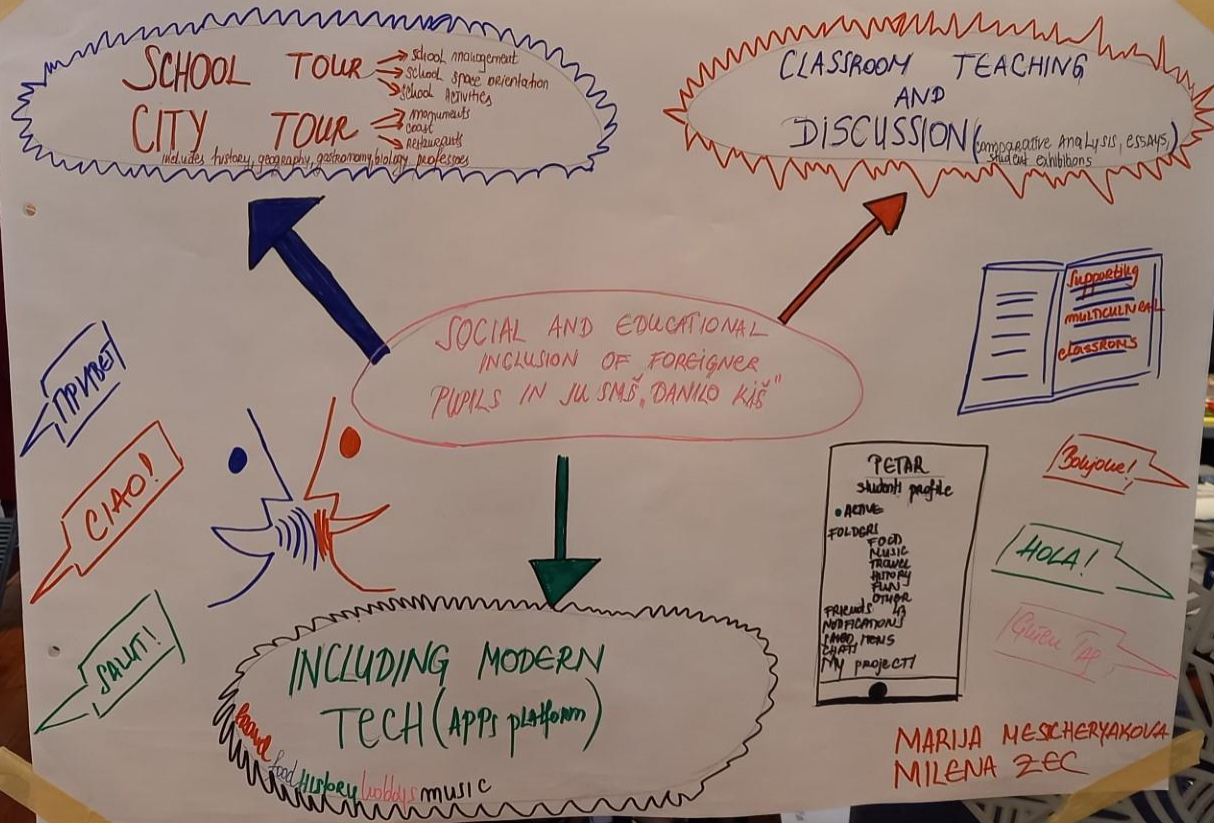 SCHOOL TOUR
school management
school space orientation
school Activities
CITY TOUR
monuments
coast
restaurants
includes history, geography, gastronomy, biology profesores
CLASSROOM TEACHING
AND
DISCUSSION (comparative Analysis, essays,
student exhibitions)
SOCIAL AND EDUCATIONAL
INCLUSION OF FOREIGNER
PUPILS IN JU SMŠ „DANILO KIŠ"
supporting
multiculural
classrons
ПРИВЕТ
CIAO!
SALUT!
PETAR
students profile
• ACTIVE
FOLDERS
FOOD
MUSIC
TRAVEL
HISTORY
FUN
OTHOR
FRIENDS
NOTIFICATIONS
CHATS
My projects
Bonjour!
HOLA!
Guten Tag
INCLUDING MODERN
TECH (APPs platform)
travel food HISTORY hobbys music
MARIJA MESCHERYAKOVA
MILENA ZEC